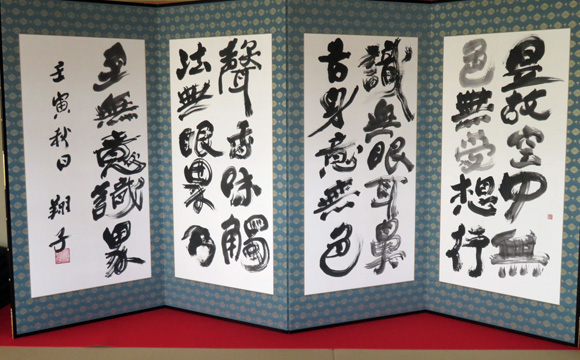 是故空中無
色無受想行
識無眼耳鼻
舌身意無色
聲香味觸
法無眼界乃
至無意識界
壬寅秋日 翔子